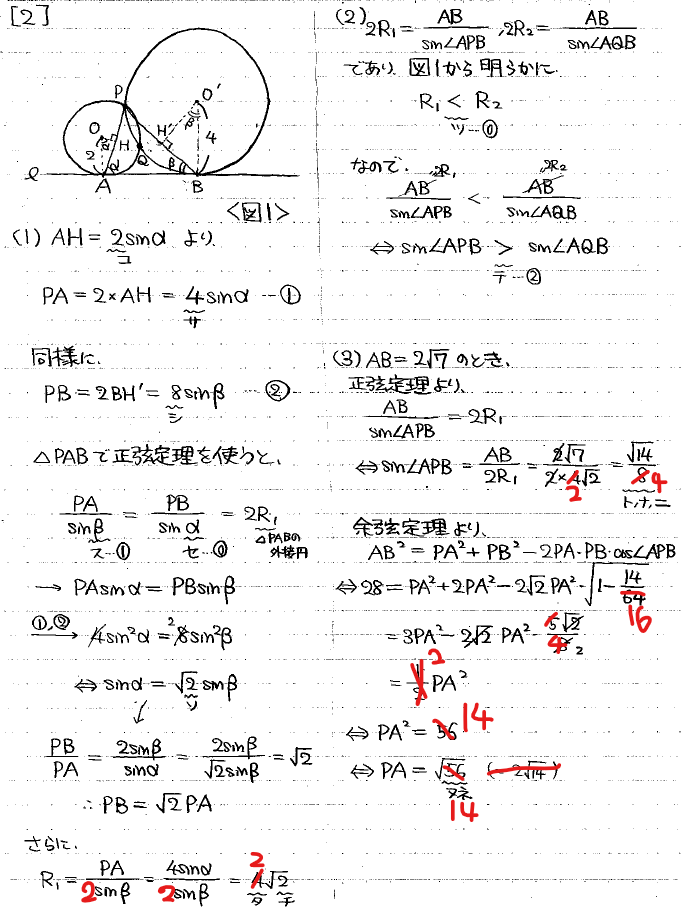 [2]
P
O
O'
H'
H
Q
β
4
2
α
β
ℓ
A
B
<図1>
(1) AH = 2sinα より
コ
PA = 2×AH = 4sinα …①
サ
同様に.
PB = 2BH' = 8sinβ …②
シ
△PABで正弦定理を使うと、
PA/sinβ = PB/sinα = 2R₁
ス…① セ…⓪ △PABの外接円
→ PAsinα = PBsinβ
①,② → 4sin²α = 8sin²β
2
⇔ sinα = √2 sinβ
ソ
PB/PA = 2sinβ/sinα = 2sinβ/√2sinβ = √2
∴ PB = √2 PA
さらに.
R₁ = PA/2sinβ = 4sinα/2sinβ = 4√2
2
タ チ
(2) 2R₁ = AB/sin∠APB , 2R₂ = AB/sin∠AQB
であり 図1から明らかに
R₁ < R₂
ツ…⓪
なので.
AB/sin∠APB < AB/sin∠AQB
2R₁ 2R₂
⇔ sin∠APB > sin∠AQB
テ…②
(3) AB = 2√7 のとき、
正弦定理より、
AB/sin∠APB = 2R₁
⇔ sin∠APB = AB/2R₁ = 2√7/2×4√2 = √14/8
2 4
ト,ナ,ニ
余弦定理より、
AB² = PA² + PB² - 2PA·PB·cos∠APB
⇔ 28 = PA² + 2PA² - 2√2 PA²·√(1 - 14/64)
16
= 3PA² - 2√2 PA²·5√2/8
4 2
= 1/2 PA²
2
⇔ PA² = 56
14
⇔ PA = √56 (= 2√14)
ヌネ
14